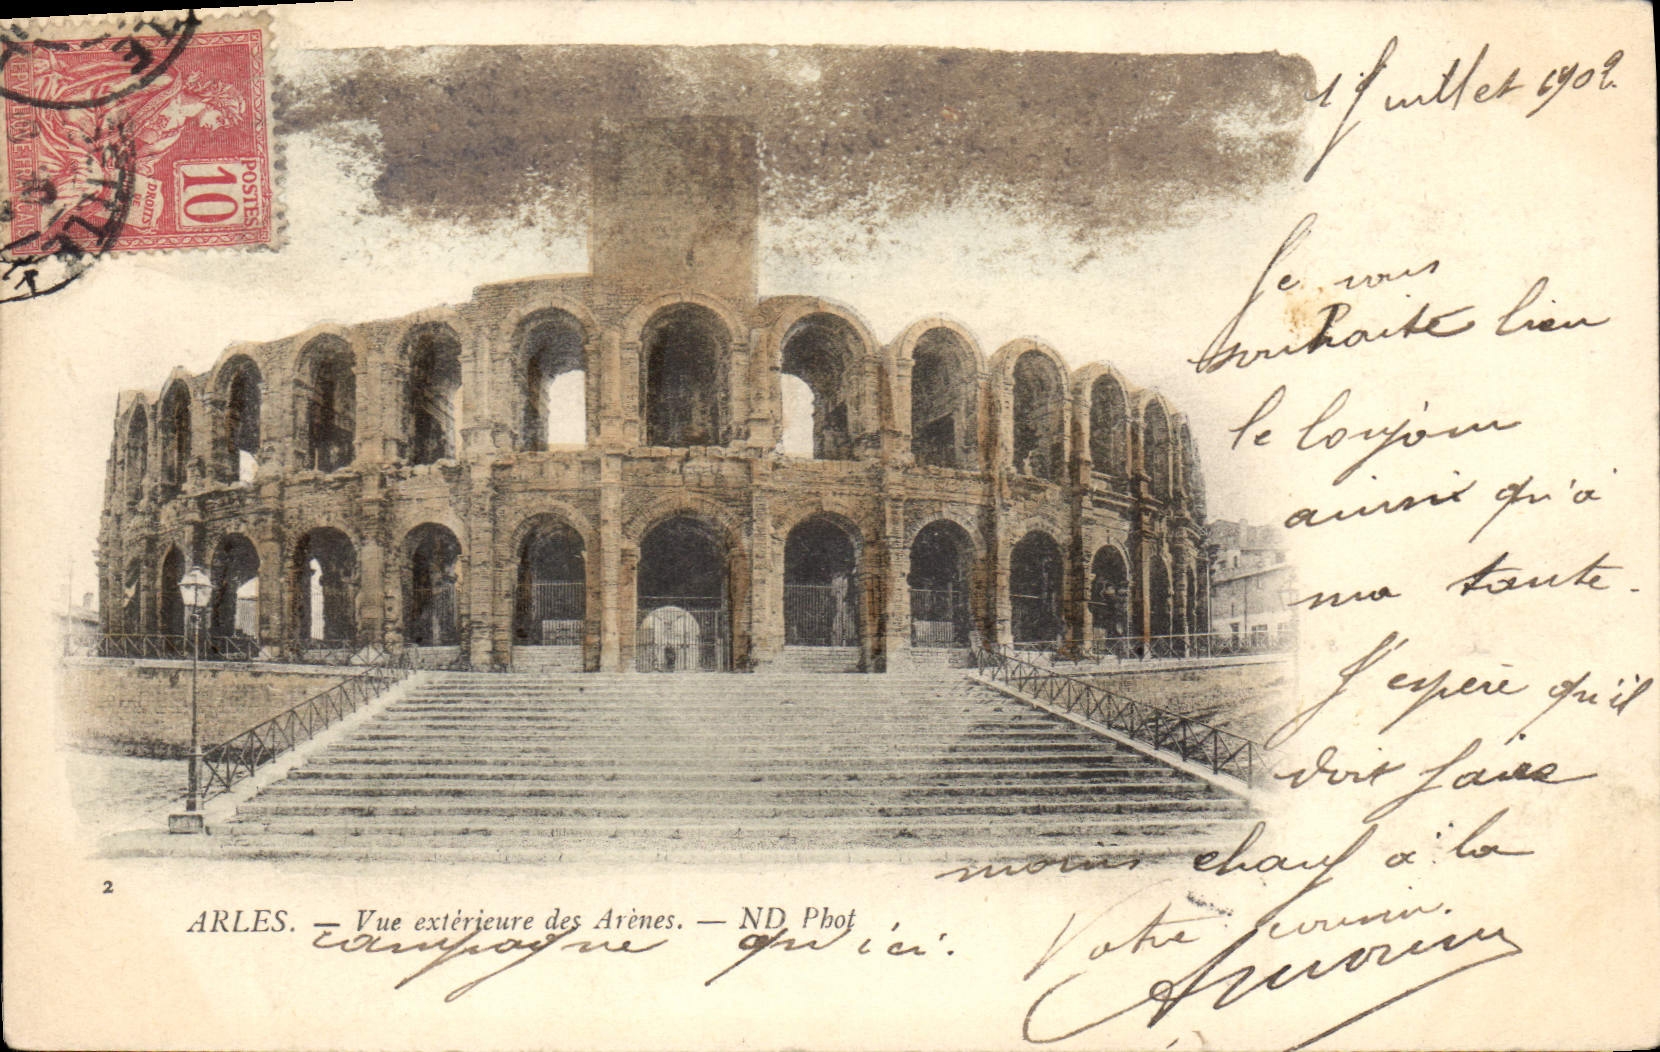 POSTES
10
DROITS
DE
1 Juillet 1902.
Je vous
souhaite bien
le bonjour
ainsi qu'à
ma tante.
J'espère qu'il
doit faire
moins chauf à la
campagne qu'ici.
Votre cousin.
2
ARLES. — Vue extérieure des Arènes. — ND Phot